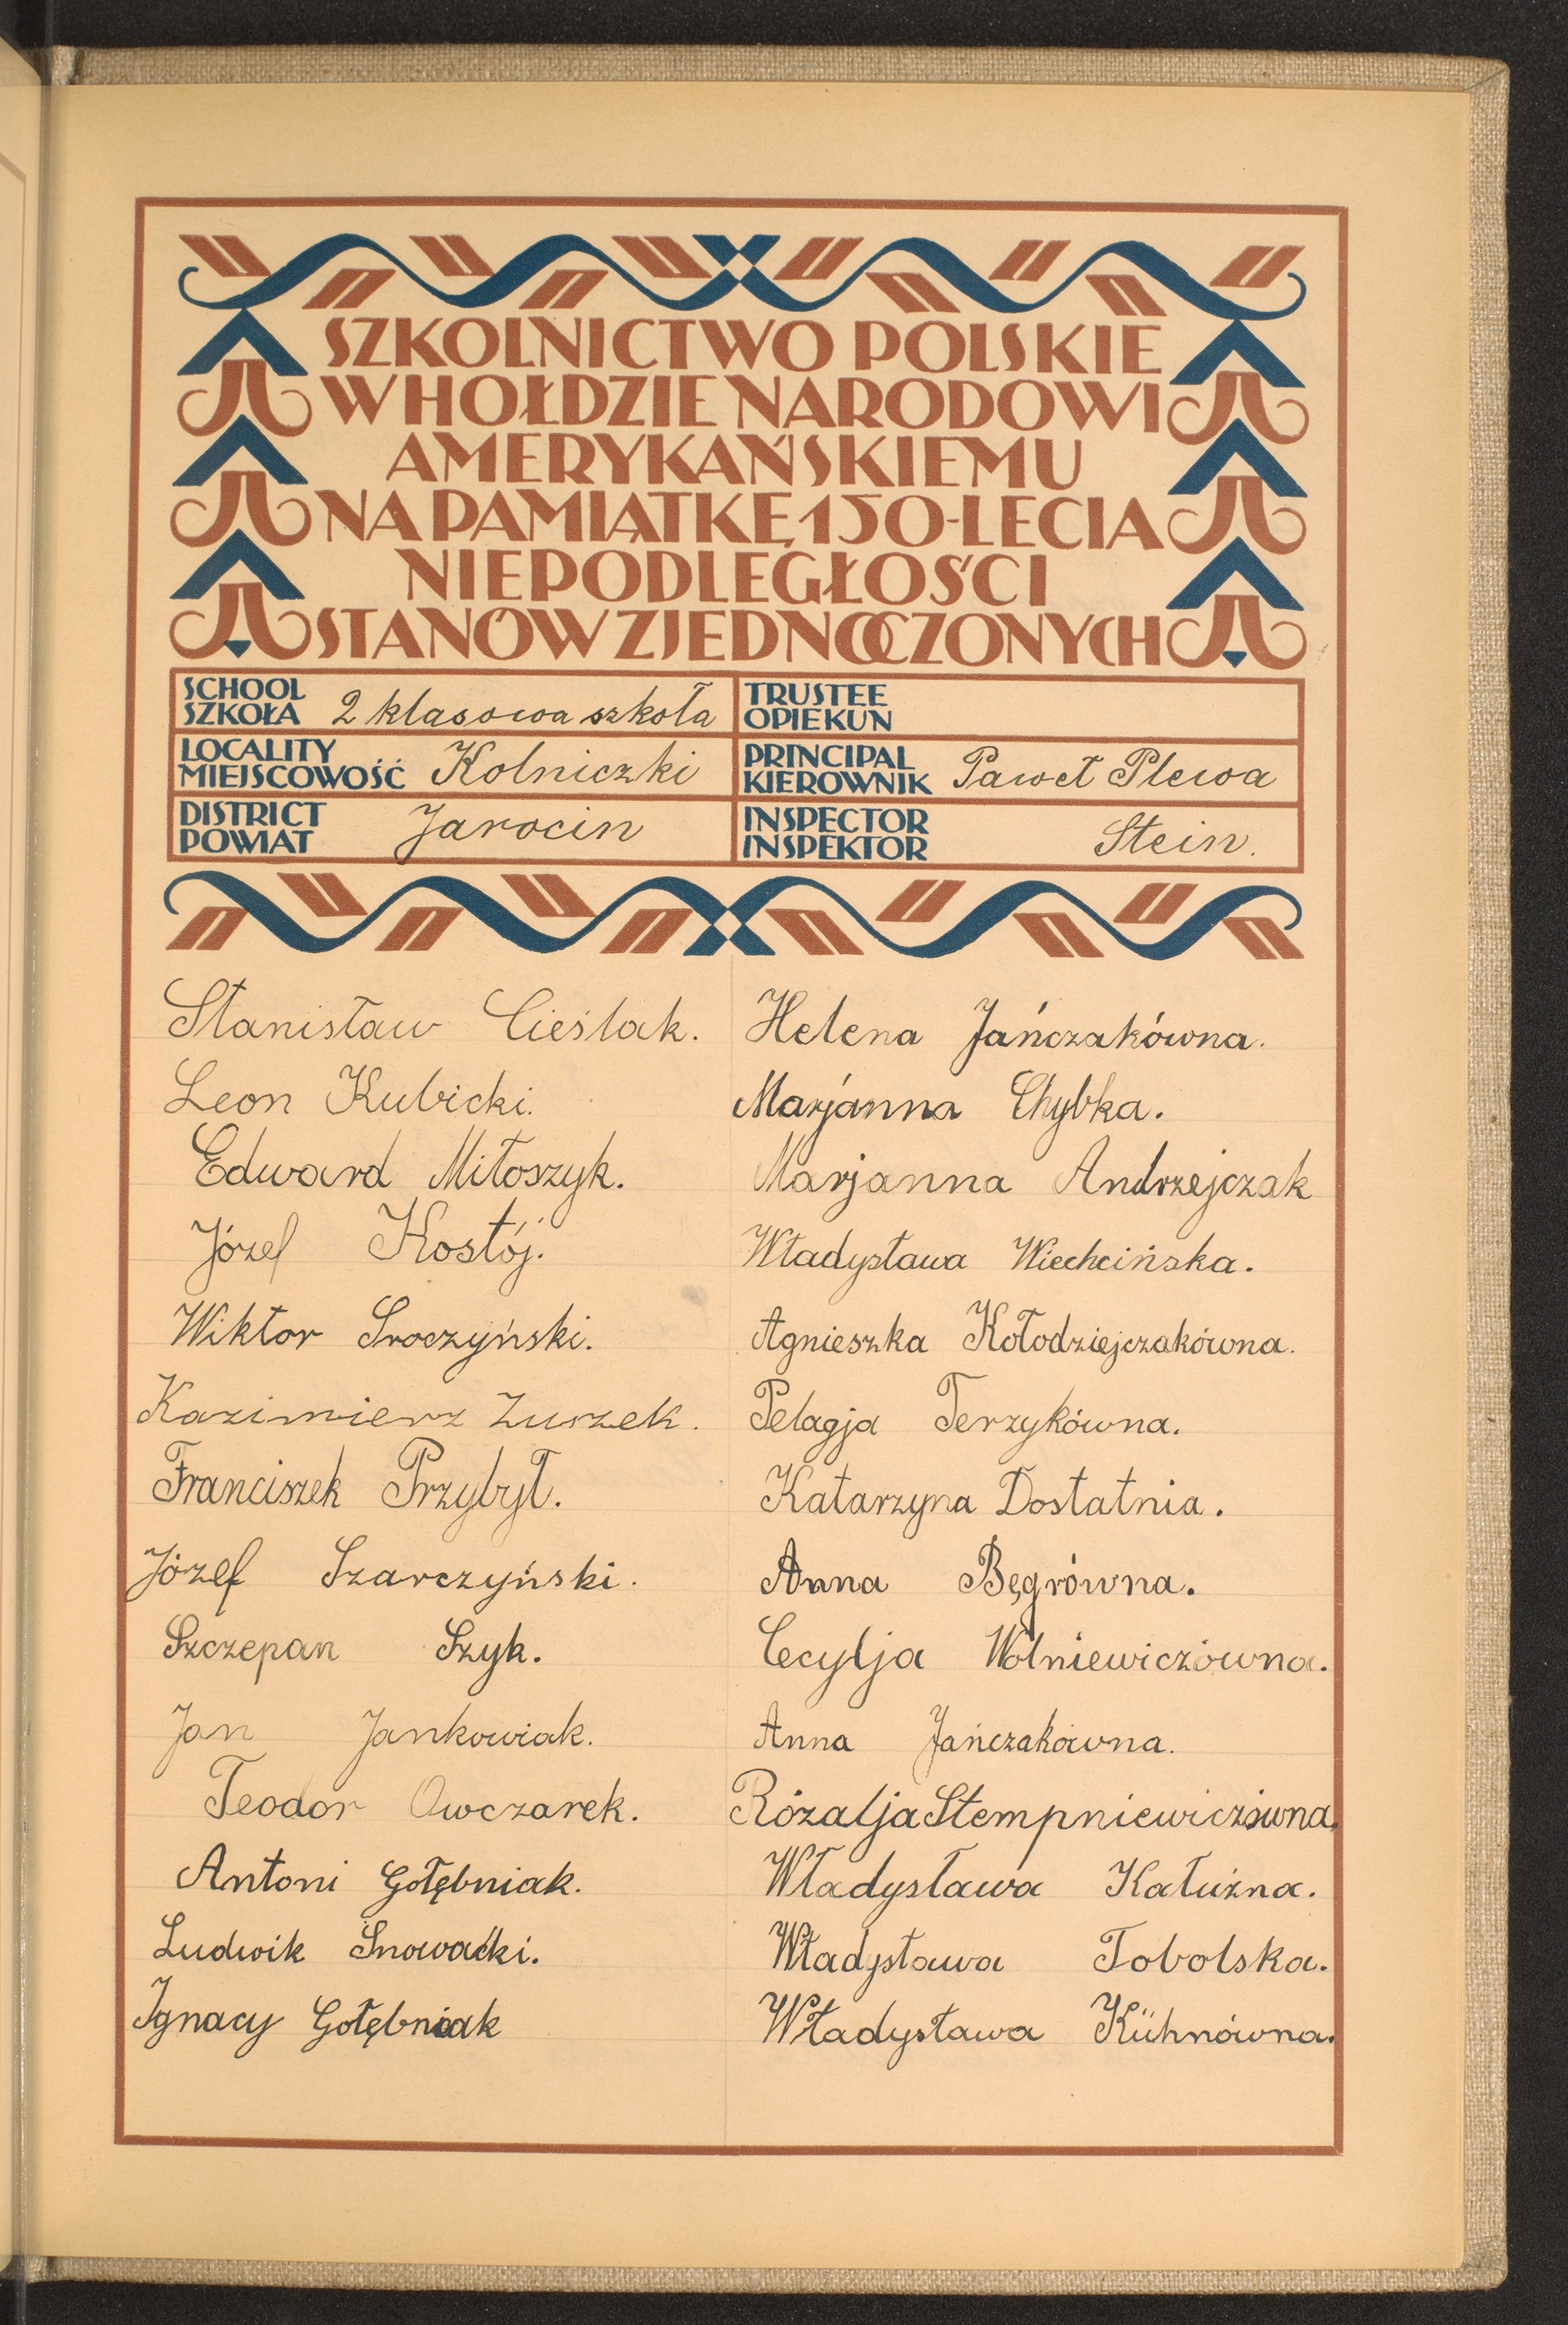 SZKOLNICTWO POLSKIE
W HOŁDZIE NARODOWI
AMERYKAŃSKIEMU
NA PAMIĄTKĘ 150-LECIA
NIEPODLEGŁOŚCI
STANÓW ZJEDNOCZONYCH
SCHOOL
SZKOŁA 2 klasowa szkoła
LOCALITY
MIEJSCOWOŚĆ Kolniczki
DISTRICT
POWIAT Jarocin
TRUSTEE
OPIEKUN
PRINCIPAL
KIEROWNIK Paweł Plewa
INSPECTOR
INSPEKTOR Stein.
Stanisław Cieślak.
Leon Kubicki.
Edward Miłoszyk.
Józef Kostój.
Wiktor Sroczyński.
Kazimierz Zuszek.
Franciszek Przybył.
Józef Szarczyński.
Szczepan Szyk.
Jan Jankowiak.
Teodor Owczarek.
Antoni Gołębniak.
Ludwik Snowacki.
Ignacy Gołębniak
Helena Jańczakówna.
Marjanna Chybka.
Marjanna Andrzejczak
Władysława Wiechcińska.
Agnieszka Kołodziejczakówna.
Pelagja Terzykówna.
Katarzyna Dostatnia.
Anna Bęgrówna.
Cecylja Wolniewiczówna.
Anna Jańczakówna.
Rózalja Stempniewiczówna.
Władysława Kałużna.
Władysława Tobolska.
Władysława Kühnówna.